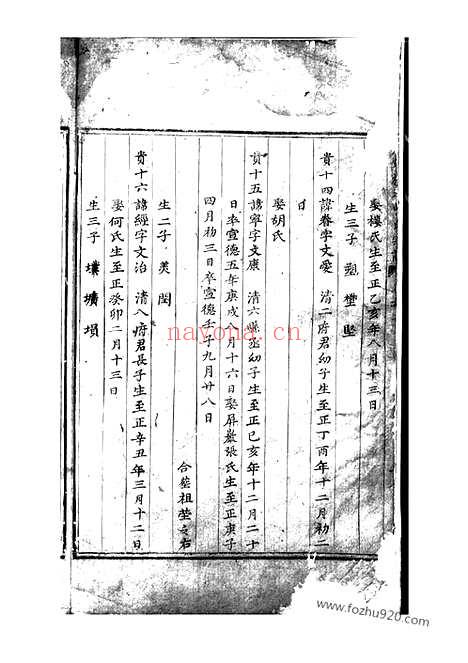 娶樓氏生至正乙亥年八月十三日
生三子 塑 壄 堅
貴十四諱眷字文愛 清二府君幼子生至正丁酉年十二月初二
日
娶胡氏
貴十五諱寧字文康 清六縣丞幼子生至正己亥年十二月二十
日卒宣德五年庚戌 月十六日娶屏巖張氏生至正庚子
四月初三日卒宣德壬子九月廿八日
合葬祖塋之右
生二子 美 閏
貴十六諱經字文治 清八府君長子生至正辛丑年三月十二日
娶何氏生至正癸卯二月十三日
生三子 壎 壙 塤
nayona.cn
www.fozhu920.com